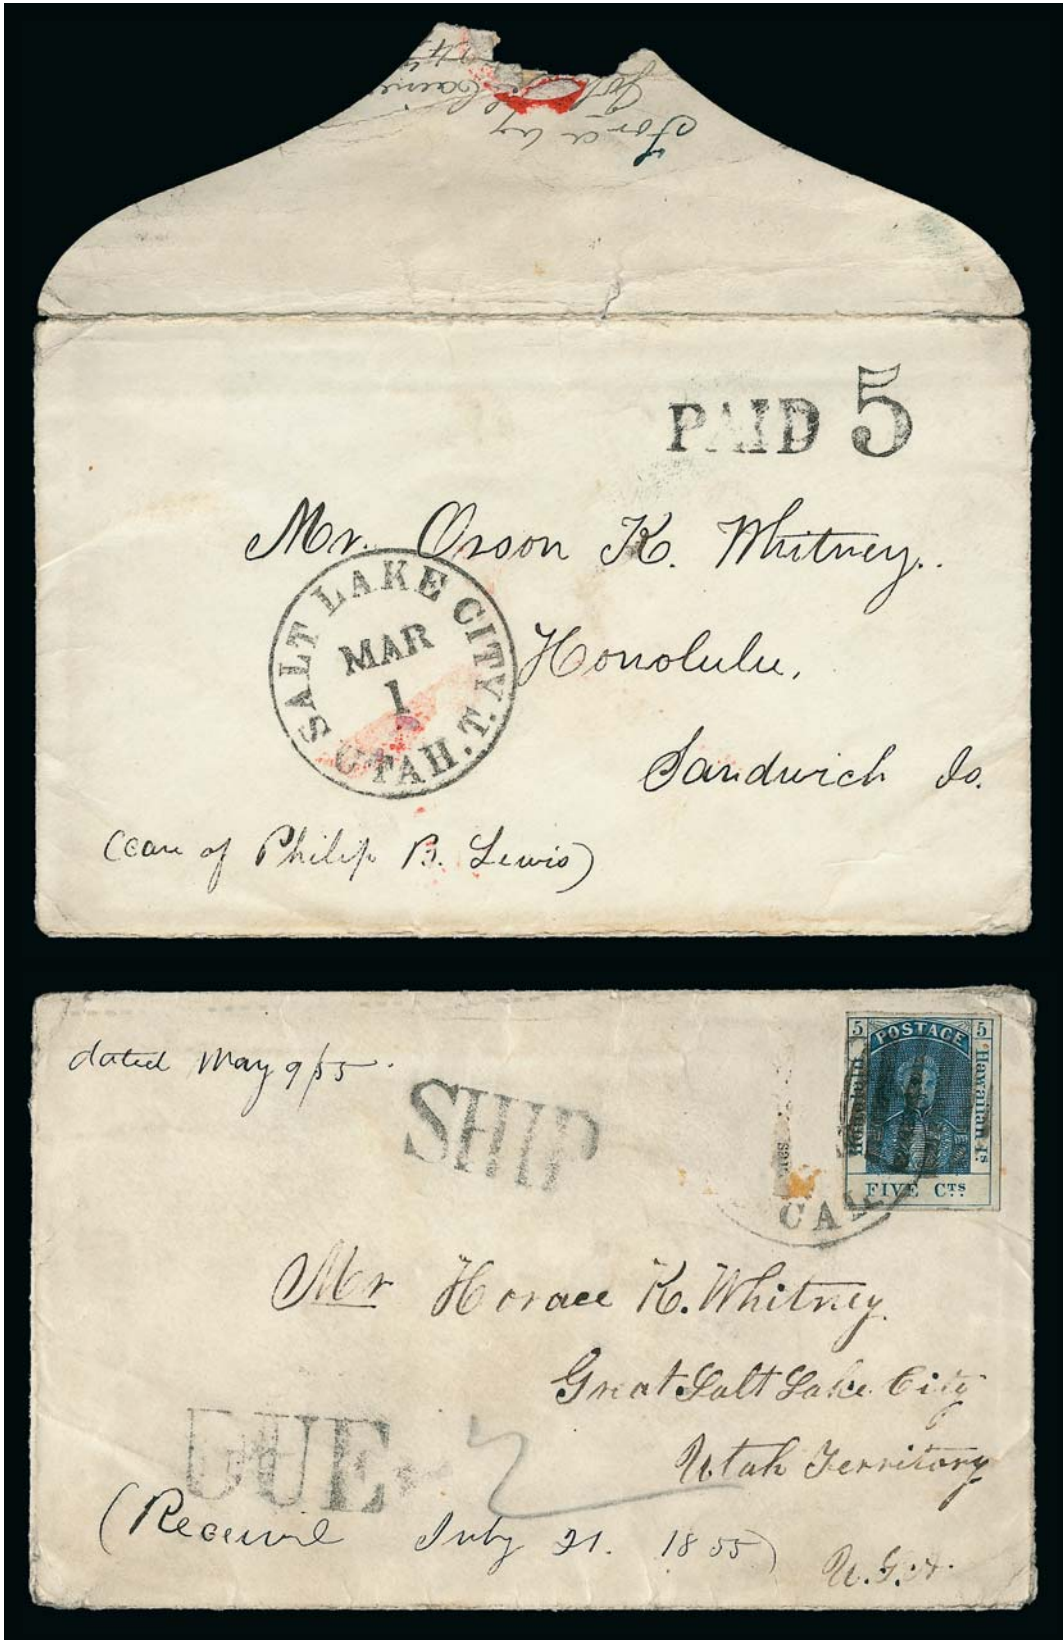 For a by
PAID 5
Mr. Orson K. Whitney.
Honolulu,
Sandwich Is.
SALT LAKE CITY. UTAH.T.
MAR
1
(care of Philip B. Lewis)
dated May 9/55.
SHIP
5 POSTAGE 5
Honolulu
Hawaiian Is.
FIVE CTS
CAL
Mr Horace K. Whitney
Great Salt Lake City
Utah Territory
U.S.A.
DUE 2
(Received July 21. 1855)